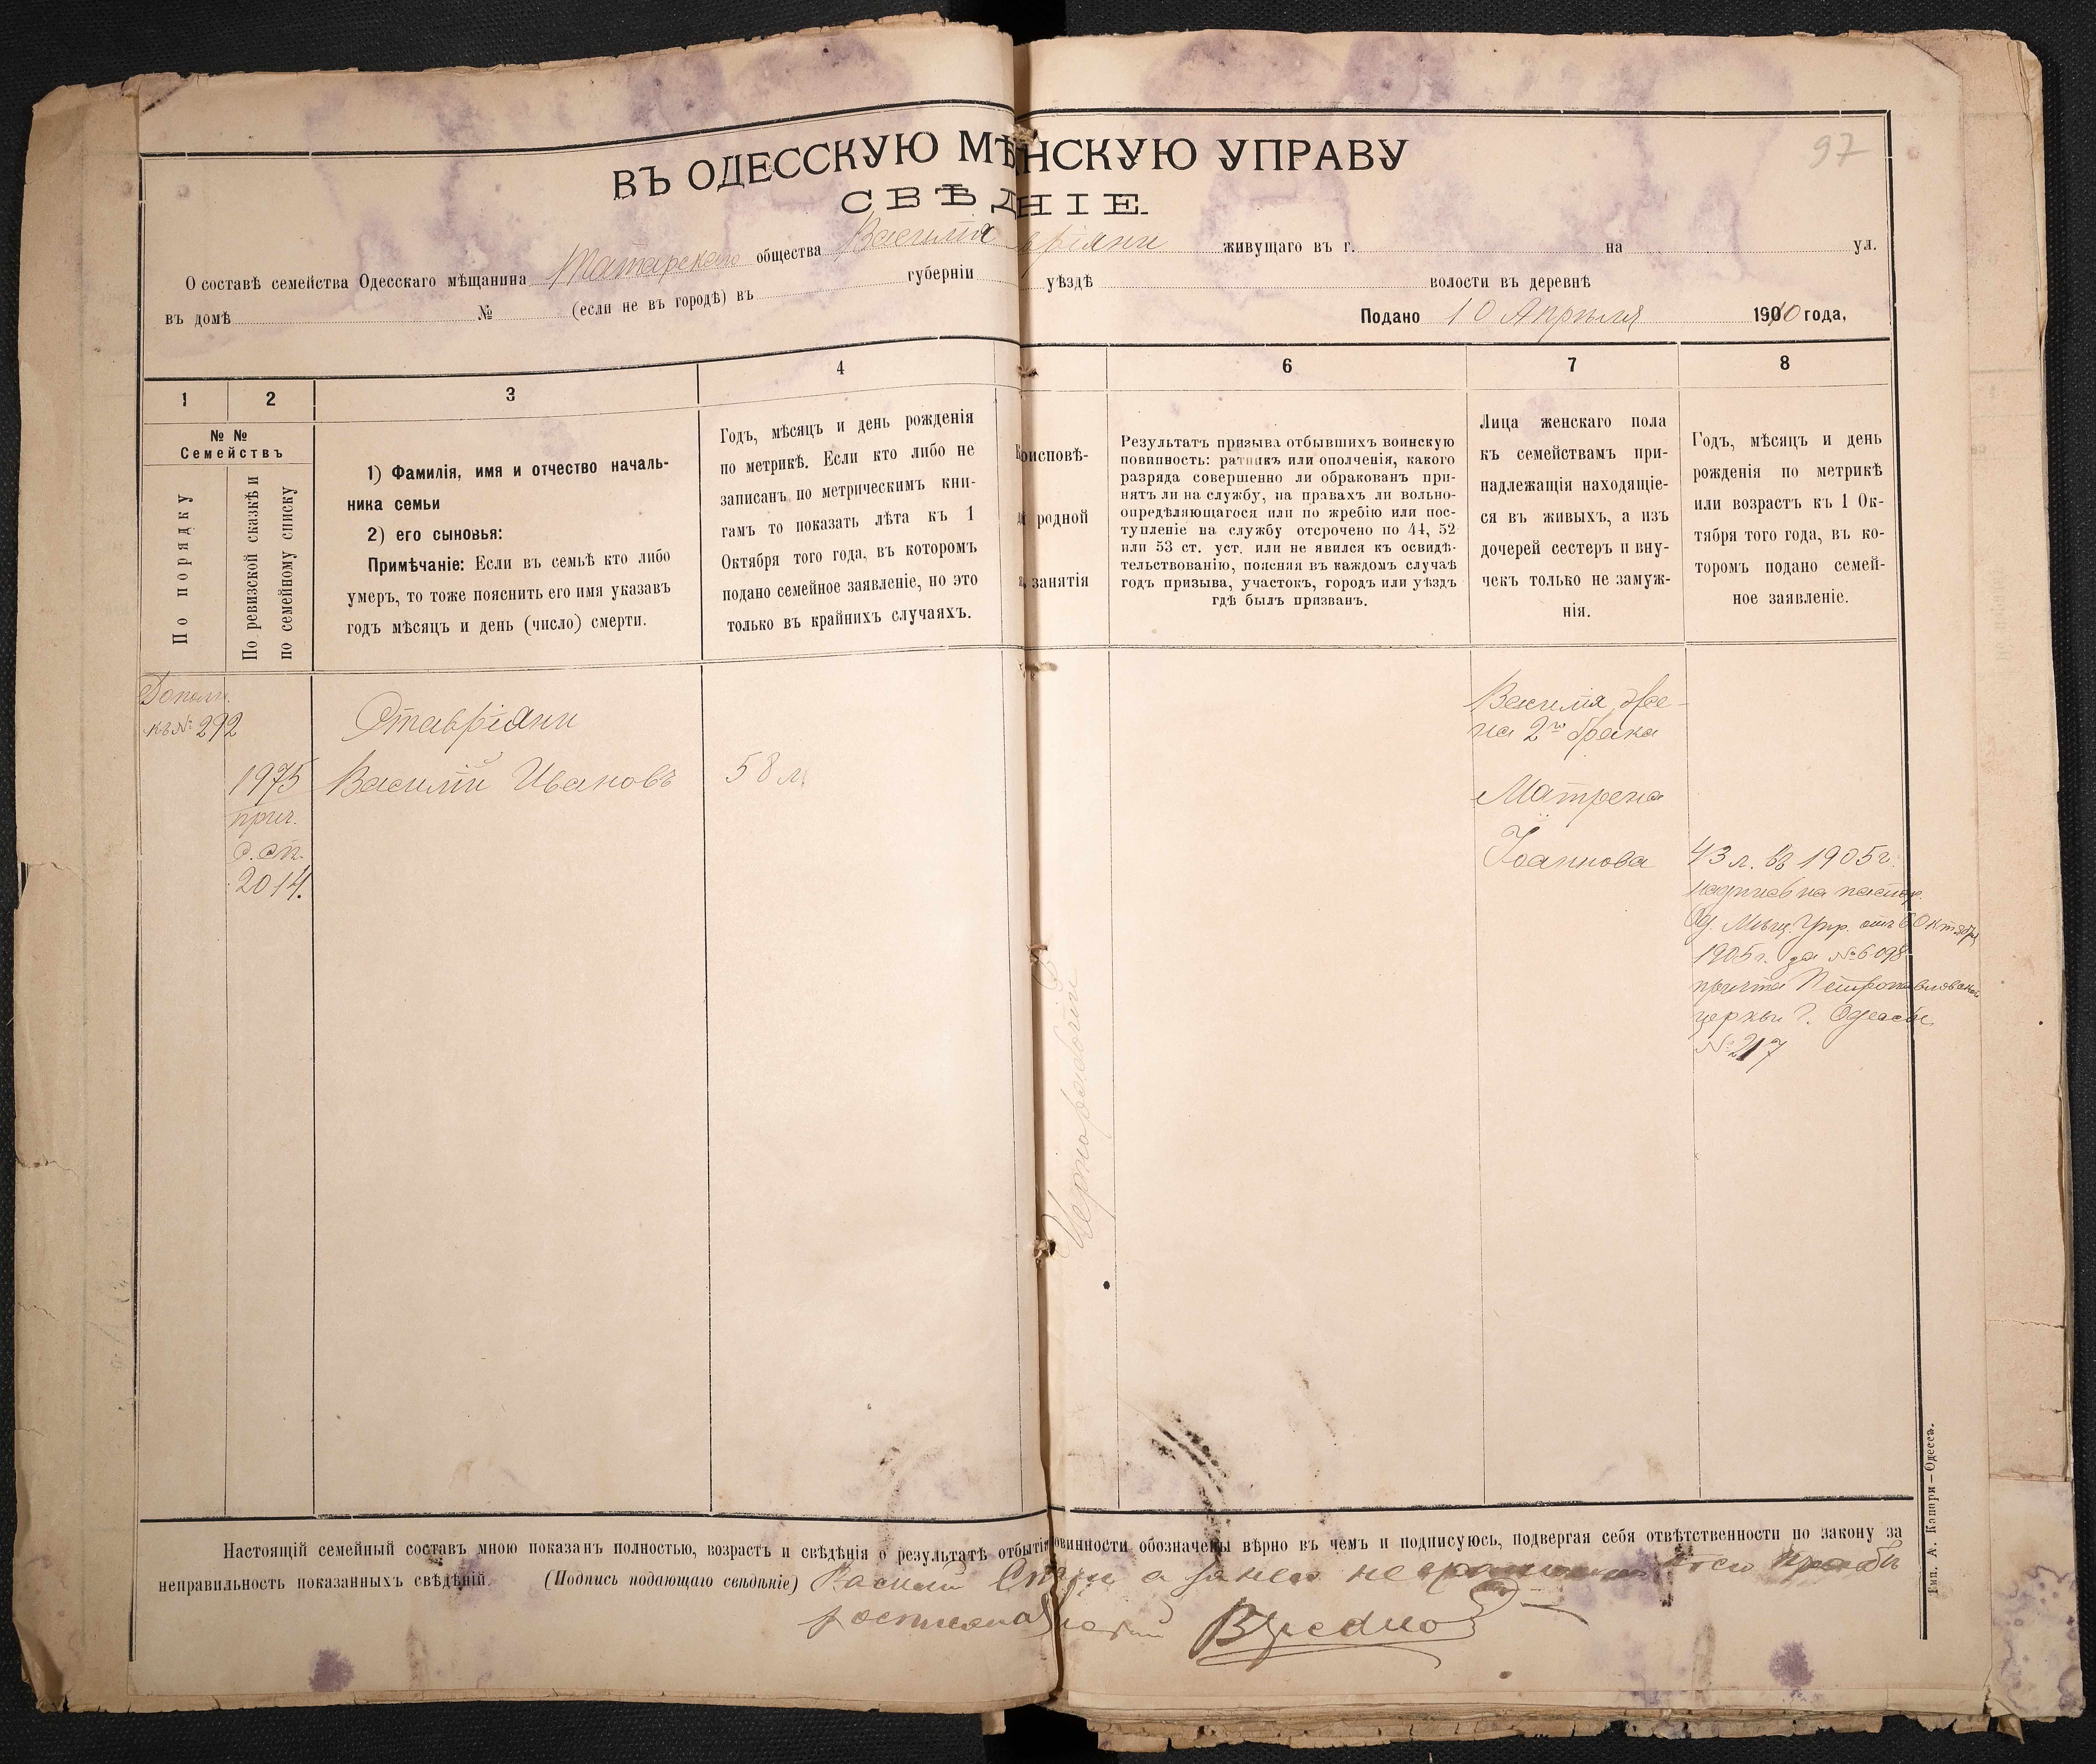 97
ВЪ ОДЕССКУЮ МѢ НСКУЮ УПРАВУ
СВѢД НІЕ.
О составѣ семейства Одесскаго мѣщанина Татарскаго общества Василія вріяни живущаго въ г. на ул.
въ домѣ № (если не въ городѣ) въ губерніи уѣздѣ волости въ деревнѣ
Подано 10 Апрѣля 1910 года,
1 2 3 4 6 7 8
№ №
Семействъ
По порядку
По ревизской сказкѣ и
по семейному списку
1) Фамилія, имя и отчество началь-
ника семьи
2) его сыновья:
Примѣчаніе: Если въ семьѣ кто либо
умеръ, то тоже пояснить его имя указавъ
годъ мѣсяцъ и день (число) смерти.
Годъ, мѣсяцъ и день рожденія
по метрикѣ. Если кто либо не
записанъ по метрическимъ кни-
гамъ то показать лѣта къ 1
Октября того года, въ которомъ
подано семейное заявленіе, но это
только въ крайнихъ случаяхъ.
оисповѣ-
родной
занятія
Результатъ призыва отбывшихъ воинскую
повинность: ратникъ или ополченія, какого
разряда совершенно ли обракованъ при-
нятъ ли на службу, на правахъ ли вольно-
опредѣляющагося или по жребію или пос-
тупленіе на службу отсрочено по 44, 52
или 53 ст. уст. или не явился къ освидѣ-
тельствованію, поясняя въ каждомъ случаѣ
годъ призыва, участокъ, городъ или уѣздъ
гдѣ былъ призванъ.
Лица женскаго пола
къ семействамъ при-
надлежащія находящіе-
ся въ живыхъ, а изъ
дочерей сестеръ и вну-
чекъ только не замуж-
нія.
Годъ, мѣсяцъ и день
рожденія по метрикѣ
или возрастъ къ 1 Ок-
тября того года, въ ко-
торомъ подано семей-
ное заявленіе.
Дополн.
къ № 292
1975
прич.
с. сп.
2014.
Ставріяни
Василій Ивановъ
58 л.
Чернорабочій
Василія же-
на 2го брака
Матрена
Іоаннова
43 л. въ 1905 г.
надпись на паспор.
Од. Мѣщ. Упр. отъ 6 Октября
1905 г. за № 6098
причта Петропавловской
церкви г. Одессы
№ 217
Настоящій семейный составъ мною показанъ полностью, возрастъ и свѣдѣнія о результатѣ отбытія овинности обозначены вѣрно въ чемъ и подписуюсь, подвергая себя отвѣтственности по закону за
неправильность показанныхъ свѣдѣній. (Подпись подающаго свѣдѣніе) Василій а за него
Тип. А. Капари—Одесса.